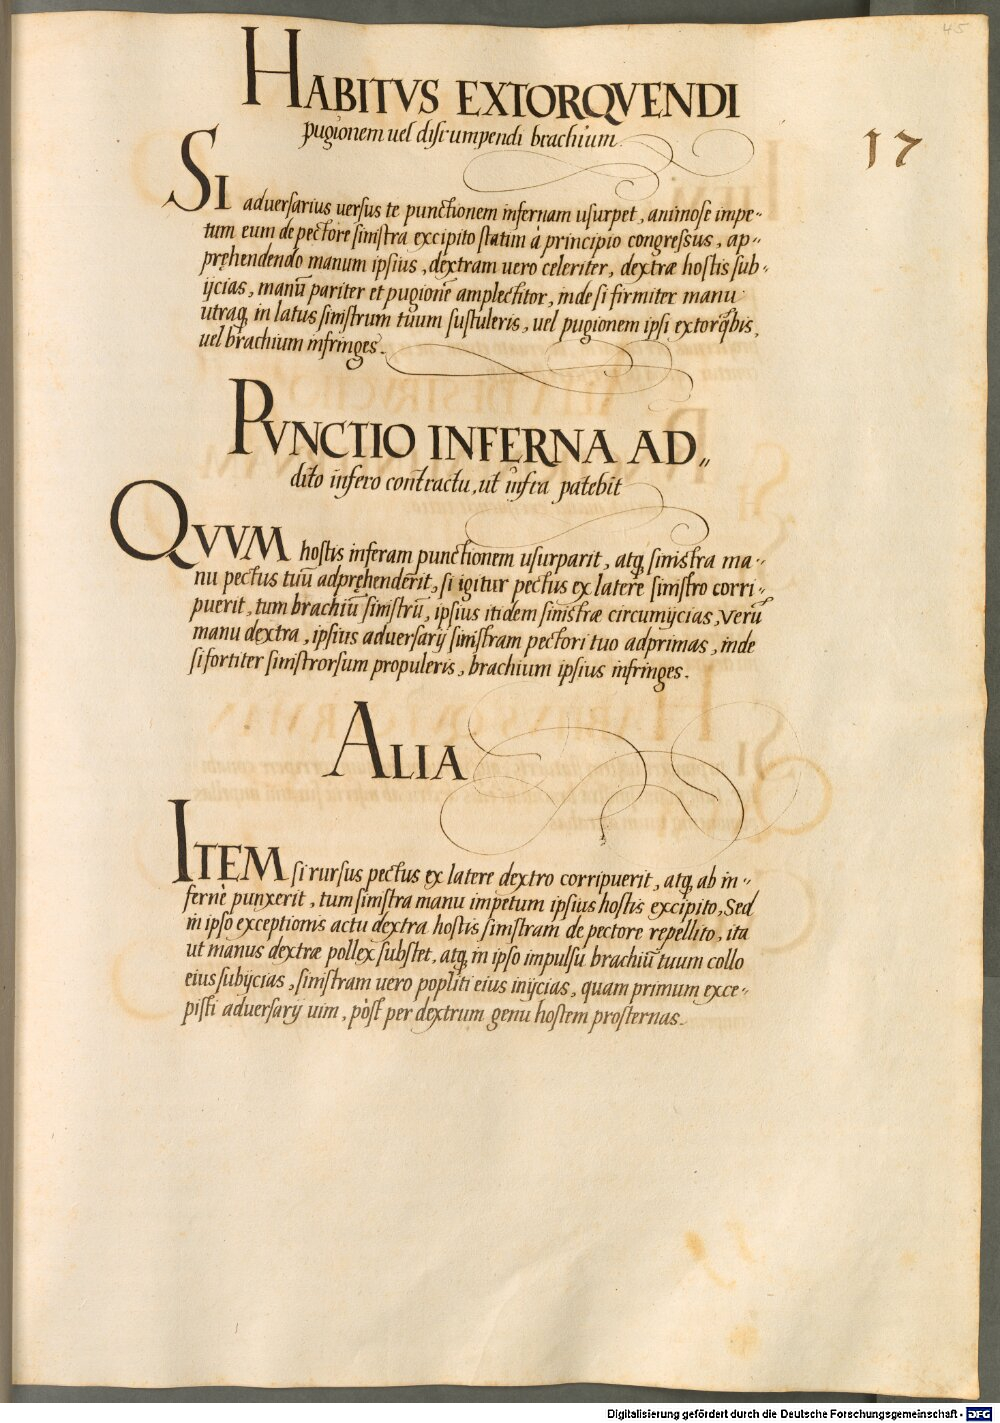 45
HABITVS EXTORQVENDI
pugionem uel disrumpendi brachium.
17
SI aduersarius uersus te punctionem infernam usurpet, animose impe-
tum eum de pectore sinistra excipito statim à principio congressus, ap-
pręhendendo manum ipsius, dextram uero celeriter, dextræ hostis sub-
ijcias, manū pariter et pugionē amplectitor, inde si firmiter manu
utraq, in latus sinistrum tuum sustuleris, uel pugionem ipsi extorq̄bis,
uel brachium infringes.
PVNCTIO INFERNA AD„
dito infero contractu, ut infra patebit
QVVM hostis inferam punctionem usurparit, atq, sinistra ma-
nu pectus tuū adpręhenderit, si igitur pectus ex latere sinistro corri-
puerit, tum brachiū sinistrū, ipsius itidem sinistræ circumijcias, Verū
manu dextra, ipsius aduersarij sinistram pectori tuo adprimas, inde
si fortiter sinistrorsum propuleris, brachium ipsius infringes.
ALIA
ITEM si rursus pectus ex latere dextro corripuerit, atq, ab in-
fernè punxerit, tum sinistra manu impetum ipsius hostis excipito, Sed
in ipso exceptionis actu dextra hostis sinistram de pectore repellito, ita
ut manus dextræ pollex substet, atq, in ipso impulsu brachiū tuum collo
eius subijcias, sinistram uero popliti eius inijcias, quam primum exce-
pisti aduersarij uim, pòst per dextrum genu hostem prosternas.
Digitalisierung gefördert durch die Deutsche Forschungsgemeinschaft - DFG